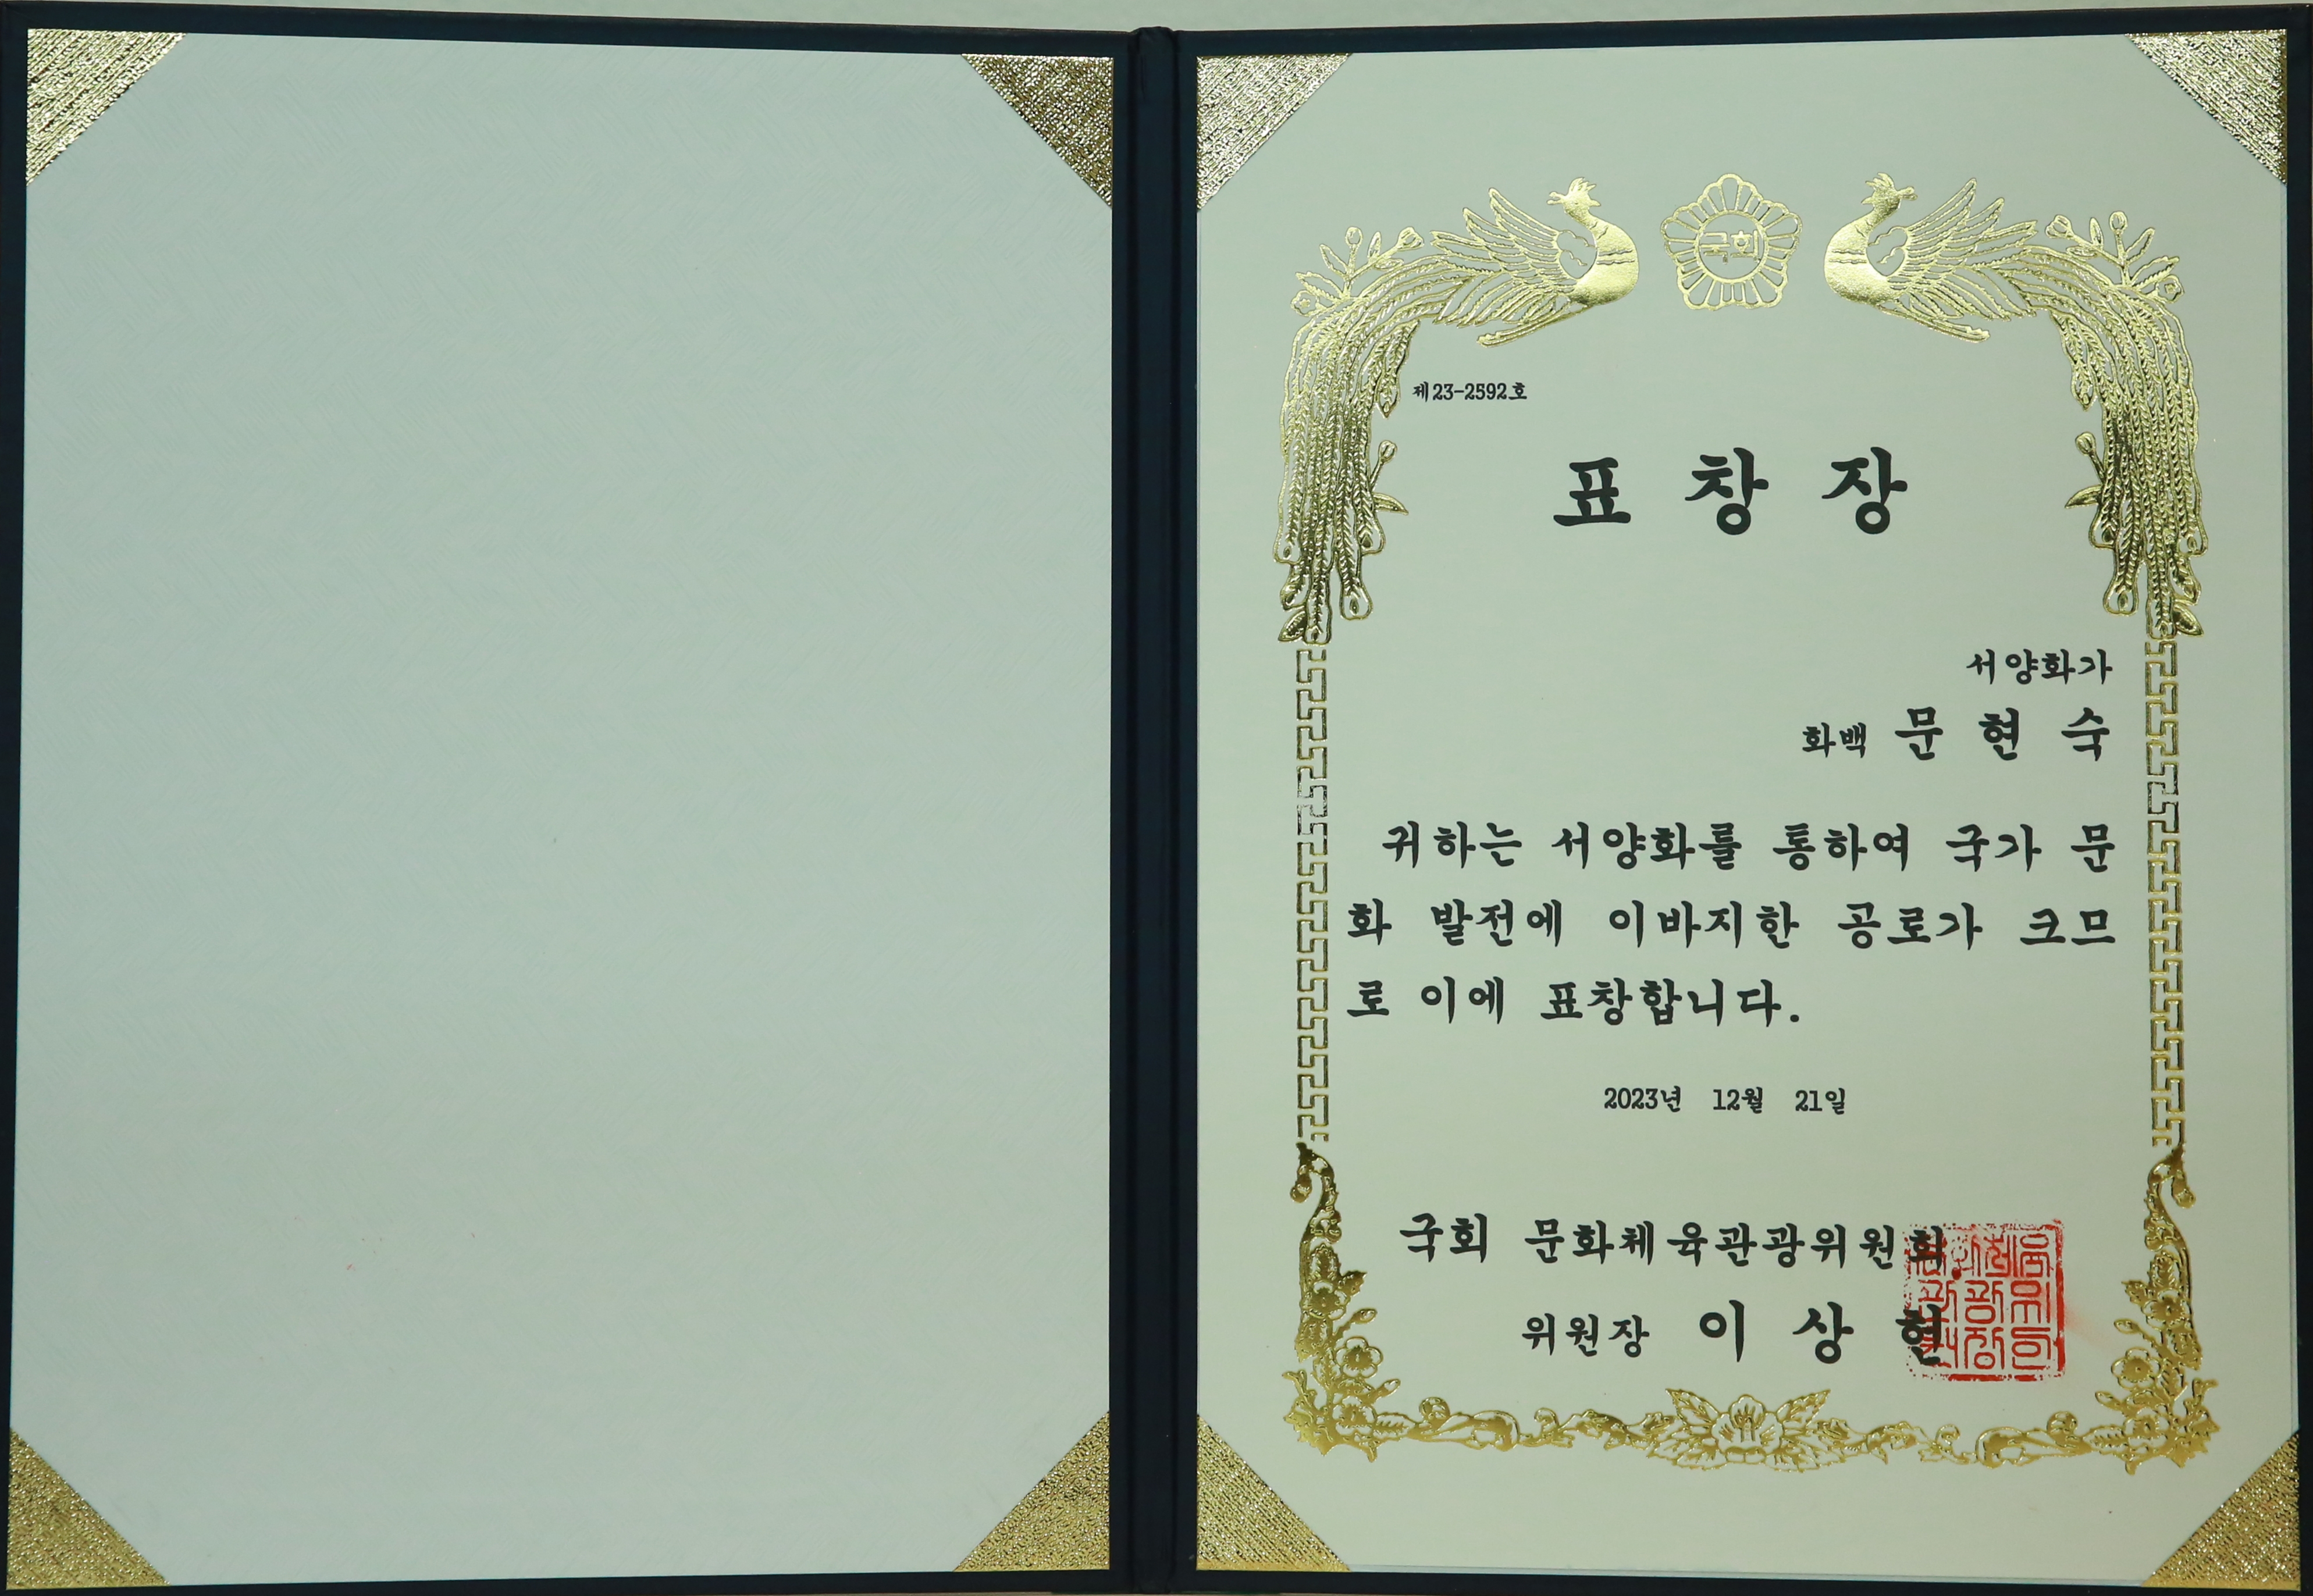 국회
제23-2592호
표 창 장
서양화가
화백 문 현 숙
귀하는 서양화를 통하여 국가 문
화 발전에 이바지한 공로가 크므
로 이에 표창합니다.
2023년 12월 21일
국회 문화체육관광위원회
위원장 이 상 헌